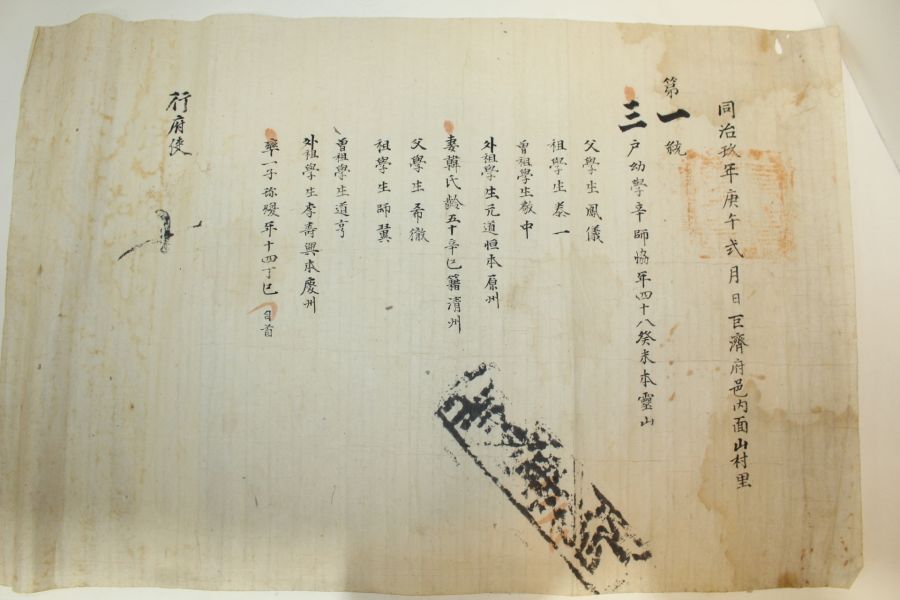 同治玖年庚午貳月日巨濟府邑內面山村里
第一統
三戶幼學辛師恊年四十八癸未本靈山
父學生鳳儀
祖學生泰一
曾祖學生敬中
外祖學生元道恒本原州
妻韓氏齡五十辛巳籍淸州
父學生希徹
祖學生師巽
曾祖學生道亨
外祖學生李壽興本慶州
率一子 年十四丁巳
行府使